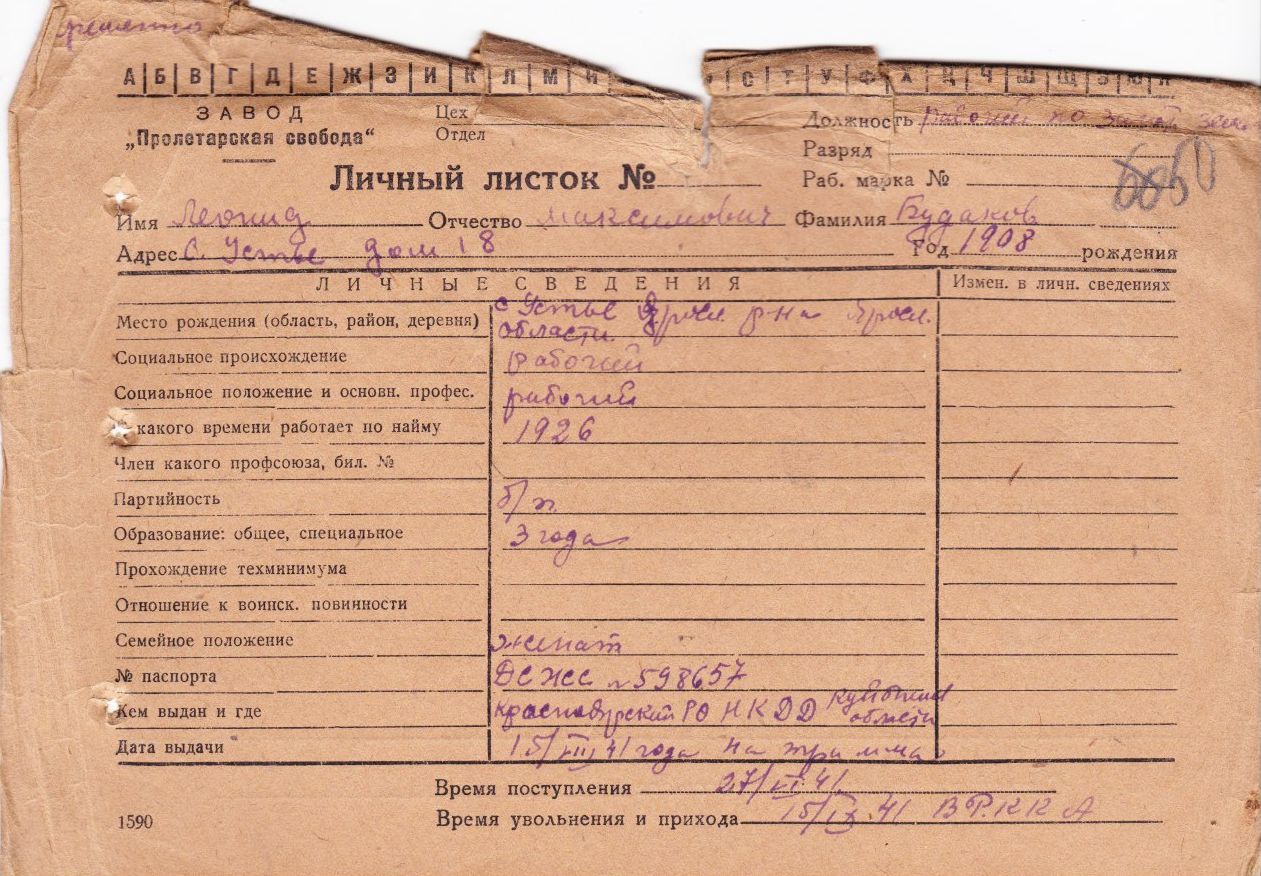 ремента
А Б В Г Д Е Ж З И К Л М Н С Т У Ф Х Ц Ч Ш Щ Э Ю Я
ЗАВОД
„Пролетарская свобода“
Цех
Отдел
Должность рабочий по
Разряд
Раб. марка №
Личный листок №
Имя Леонид Отчество Максимович Фамилия Будаков
Адрес С. Устье дом 18 Год 1908 рождения
ЛИЧНЫЕ СВЕДЕНИЯ Измен. в личн. сведениях
Место рождения (область, район, деревня) с Устье Яросл. р-на Яросл.
области.
Социальное происхождение рабочий
Социальное положение и основн. профес. рабочий
какого времени работает по найму 1926
Член какого профсоюза, бил. №
Партийность б/п
Образование: общее, специальное 3 года
Прохождение техминимума
Отношение к воинск. повинности
Семейное положение женат
№ паспорта № 598657
Кем выдан и где Красноярский РО НКВД Куйбышев
области
Дата выдачи 15/VIII 41 года на три м-ца
Время поступления 27/VI 41.
1590
Время увольнения и прихода 15/IX 41 В РККА